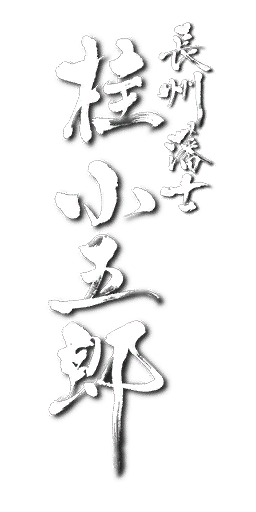 長州藩士
桂小五郎